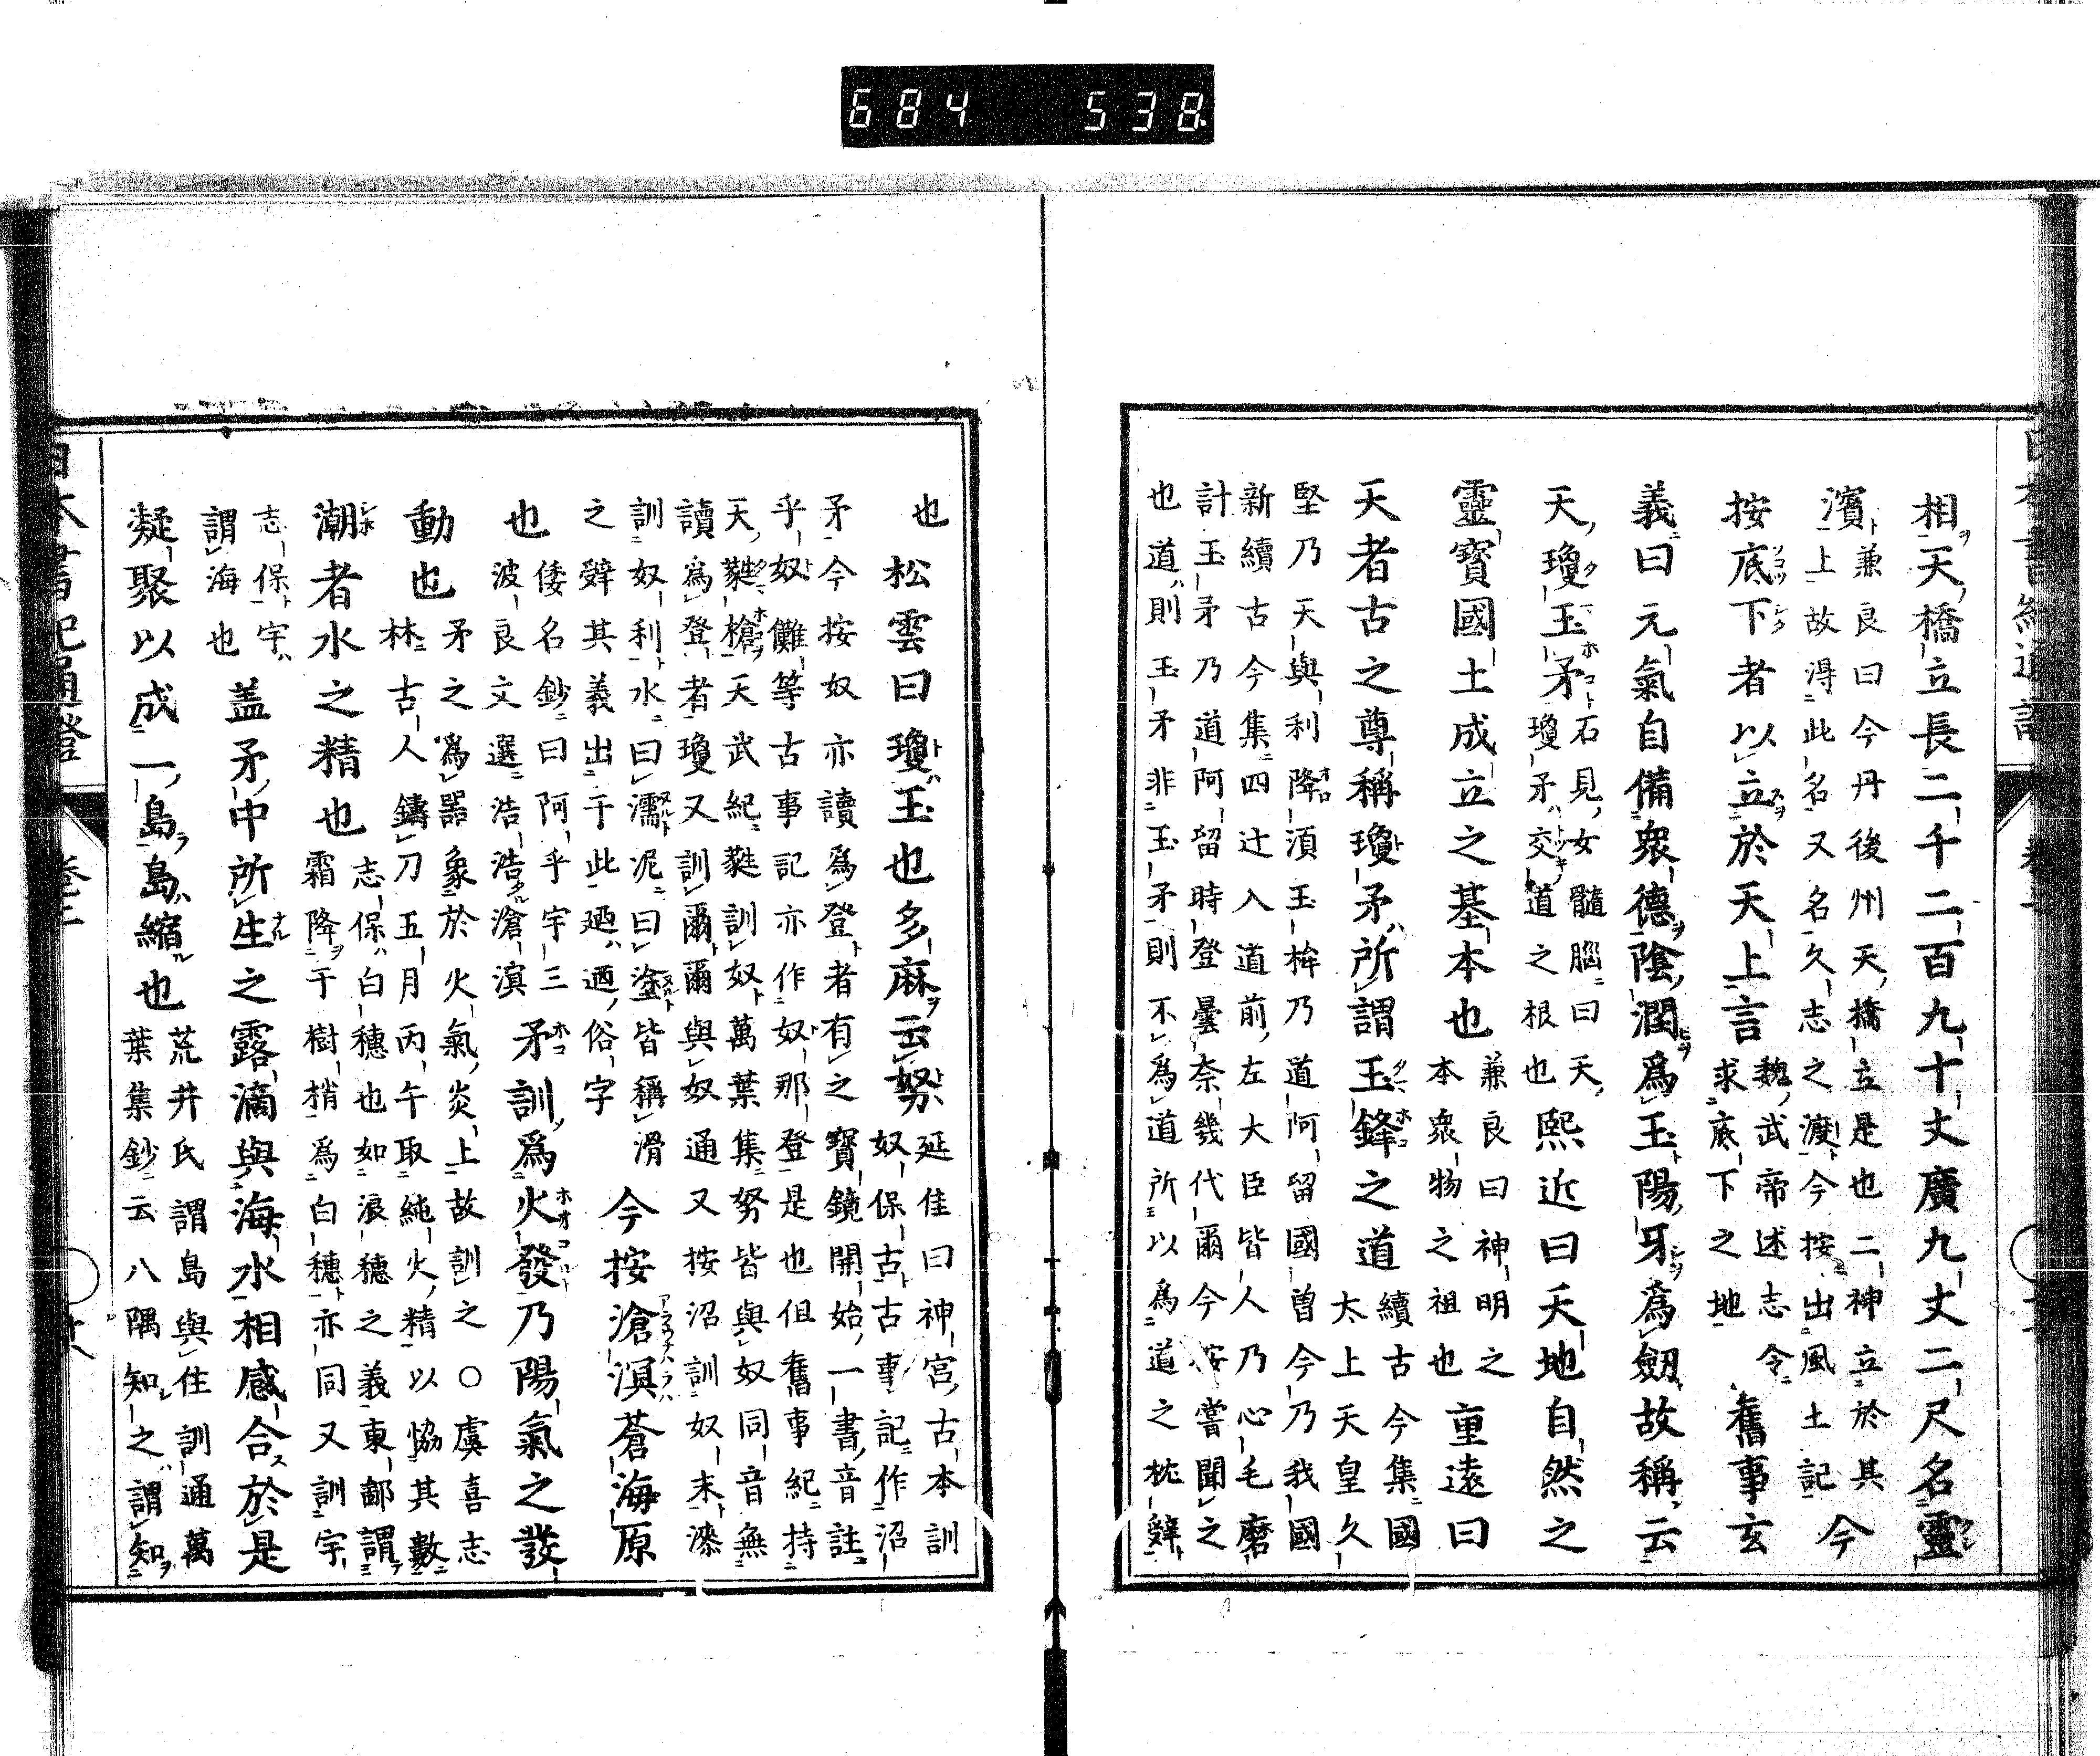 684 538
相天橋立長二千二百九十丈廣九丈二尺名靈
濱兼良曰今丹後州天橋立是也二神立於其
上故得此名又名久志之渡今按出風土記今
按底下者以立於天上言魏武帝述志令
求底下之地舊事玄
義曰元氣自備衆德陰潤爲玉陽牙爲劔故稱云
天瓊玉矛石見女髓腦曰天
瓊矛交道之根也熙近曰天地自然之
靈寶國土成立之基本也兼良曰神明之
本衆物之祖也重遠曰
天者古之尊稱瓊矛所謂玉鋒之道續古今集國
太上天皇久
堅乃天與利降須玉桙乃道阿留國曽今乃我國
新續古今集四辻入道前左大臣皆人乃心毛磨
計玉矛乃道阿留時登曇奈幾代爾今按嘗聞之
也道則玉矛非玉矛則不爲道所以爲道之枕辭
也松雲曰瓊玉也多麻云努延佳曰神宮古本訓
奴保古古事記作沼
矛今按奴亦讀爲登者有之寶鏡開始一書音註
乎奴儺等古事記亦作奴那登是也但舊事紀持
天蕤槍天武紀蕤訓奴萬葉集努皆與奴同音無
讀爲登者瓊又訓爾爾與奴通又按沼訓奴未漆
訓奴利水曰濡泥曰塗皆稱滑
之辭其義出于此廼迺俗字今按滄溟蒼海原
也倭名鈔曰阿乎宇三
波良文選浩浩滄溟矛訓爲火發乃陽氣之發
動也矛之爲器象於火氣炎上故訓之○虞喜志
林古人鑄刀五月丙午取純火精以協其數
潮者水之精也志保白穗也如浪穗之義東鄙謂
霜降于樹梢爲白穗亦同又訓宇
志保宇
謂海也盖矛中所生之露滴與海水相感合於是
凝聚以成一島島縮也荒井氏謂島與住訓通萬
葉集鈔云八隅知之謂知
日本書紀通證
卷二